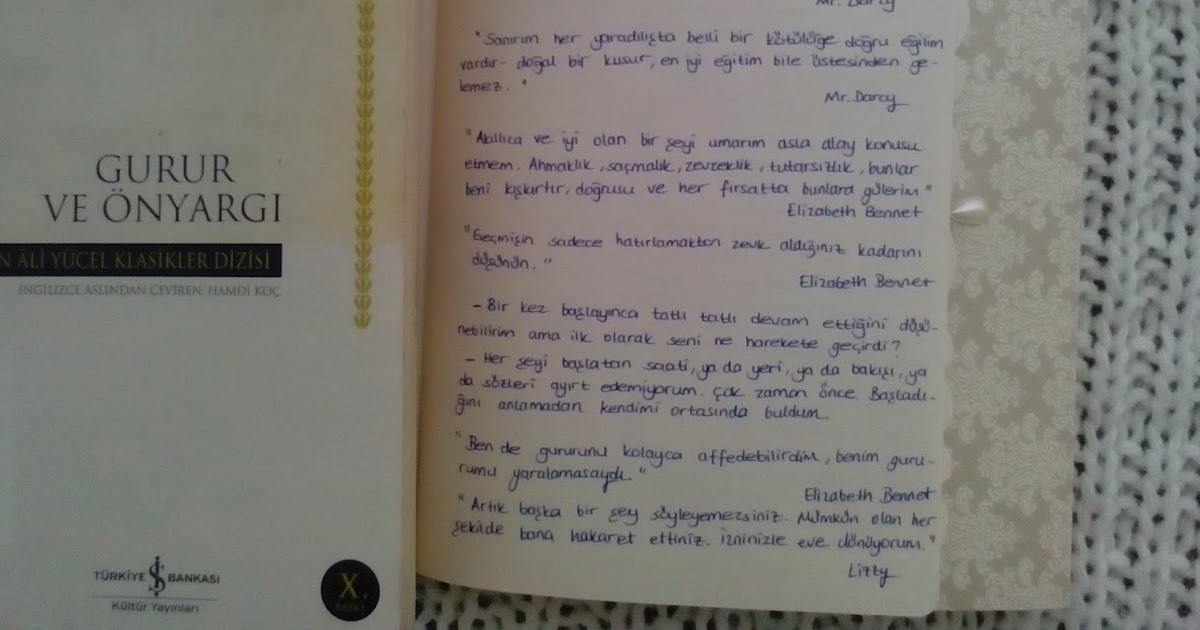 GURUR
VE ÖNYARGI
N ÂLİ YÜCEL KLASİKLER DİZİSİ
İNGİLİZCE ASLINDAN ÇEVİREN: HAMDİ KOÇ
TÜRKİYE İŞ BANKASI
Kültür Yayınları
X.
BASKI
Mr. Darcy
"Sanırım her yaradılışta belli bir kötülüğe doğru eğilim
vardır- doğal bir kusur, en iyi eğitim bile üstesinden ge-
lemez. "
Mr. Darcy
"Akıllıca ve iyi olan bir şeyi umarım asla alay konusu
etmem. Ahmaklık, saçmalık, zevzeklik, tutarsızlık, bunlar
beni kışkırtır, doğrusu ve her fırsatta bunlara gülerim"
Elizabeth Bennet
"Geçmişin sadece hatırlamaktan zevk aldığınız kadarını
düşünün. "
Elizabeth Bennet
- Bir kez başlayınca tatlı tatlı devam ettiğini düşü-
nebilirim ama ilk olarak seni ne harekete geçirdi?
- Her şeyi başlatan saati, ya da yeri, ya da bakışı, ya
da sözleri ayırt edemiyorum. Çok zaman önce. Başladı-
ğını anlamadan kendimi ortasında buldum.
"Ben de gururunu kolayca affedebilirdim, benim guru-
rumu yaralamasaydı. "
Elizabeth Bennet
"Artık başka bir şey söyleyemezsiniz. Mümkün olan her
şekilde bana hakaret ettiniz. İzninizle eve dönüyorum."
Lizzy